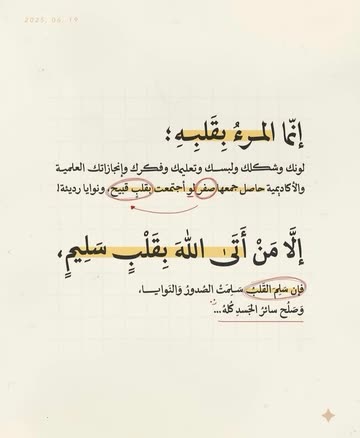 2025. 06. 19
إنّما المرءُ بِقَلبِهِ؛
لونك وشكلك ولبسك وتعليمك وفكرك وإنجازاتك العلمية
والأكاديمية حاصل جمعها صفر لو أجتمعت بقلب قبيح، ونوايا رديئة!
إِلَّا مَنْ أَتَى اللهَ بِقَلْبٍ سَلِيمٍ،
فإن سَلِمَ القَلبُ سَلِمَتْ الصّدورُ وَالنّوايـــا،
وَصَلُح سائرُ الجَسدِ كُلهُ...